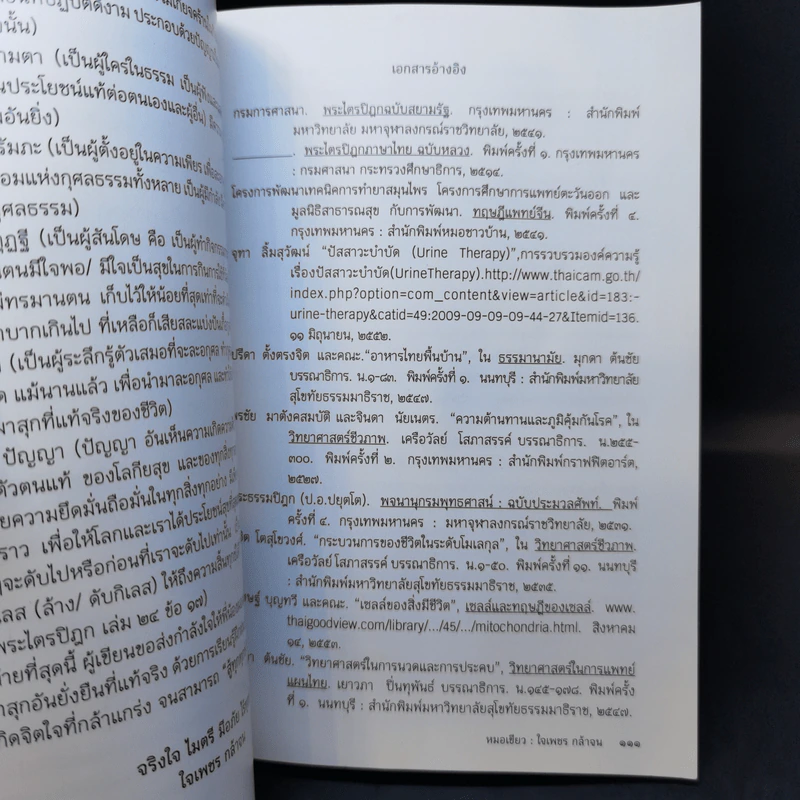 ที่ปฏิบัติดีงาม ประกอบด้วยปัญญา
นั้น)
ามตา (เป็นผู้ใคร่ในธรรม เป็นผู้ฟัง
นประโยชน์แท้ต่อตนเองและผู้อื่น)
มอันยิ่ง)
รัมภะ (เป็นผู้ตั้งอยู่ในความเพียร
อมแห่งกุศลธรรมทั้งหลาย เป็นผู้มีกำลัง
กุศลธรรม)
ฏฐี (เป็นผู้สันโดษ คือ เป็นผู้ทำกิจ
ตนมีใจพอ/ มีใจเป็นสุขในการกินการใช้
ทรมานตน เก็บไว้ให้น้อยที่สุดเท่าที่จะ
าบากเกินไป ที่เหลือก็เสียสละแบ่งปัน
(เป็นผู้ระลึกรู้ตัวเสมอที่จะละอกุศล
ด แม้นานแล้ว เพื่อนำมาละอกุศล และ
มาสุกที่แท้จริงของชีวิต)
ปัญญา (ปัญญา อันเห็นความเกิดความ
ตัวตนแท้ ของโลกียสุข และของทุกสิ่ง
ยความยึดมั่นถือมั่นในทุกสิ่งทุกอย่าง
ราว เพื่อให้โลกและเราได้ประโยชน์สุข
จะดับไปหรือก่อนที่เราจะดับไปเท่านั้น
เลส (ล้าง/ ดับกิเลส) ให้ถึงความสิ้นทุกข์
พระไตรปิฎก เล่ม ๒๔ ข้อ ๑๗)
ายที่สุดนี้ ผู้เขียนขอส่งกำลังใจให้พี่น้อง
าสุกอันยั่งยืนที่แท้จริง ด้วยการเรียนรู้
กิดจิตใจที่กล้าแกร่ง จนสามารถ
จริงใจ ไมตรี มีอภัย
ใจเพชร กล้าจน
เอกสารอ้างอิง
กรมการศาสนา. พระไตรปิฎกฉบับสยามรัฐ. กรุงเทพมหานคร : สำนักพิมพ์
มหาวิทยาลัย มหาจุฬาลงกรณ์ราชวิทยาลัย, ๒๕๔๑.
________. พระไตรปิฎกภาษาไทย ฉบับหลวง. พิมพ์ครั้งที่ ๑. กรุงเทพมหานคร
: กรมศาสนา กระทรวงศึกษาธิการ, ๒๕๑๔.
โครงการพัฒนาเทคนิคการทำยาสมุนไพร โครงการศึกษาการแพทย์ตะวันออก และ
มูลนิธิสาธารณสุข กับการพัฒนา. ทฤษฎีแพทย์จีน. พิมพ์ครั้งที่ ๔.
กรุงเทพมหานคร : สำนักพิมพ์หมอชาวบ้าน, ๒๕๔๑.
จุฑา ลิ้มสุวัฒน์ “ปัสสาวะบำบัด (Urine Therapy)”,การรวบรวมองค์ความรู้
เรื่องปัสสาวะบำบัด(UrineTherapy).http://www.thaicam.go.th/
index.php?option=com_content&view=article&id=183:-
urine-therapy&catid=49:2009-09-09-09-44-27&Itemid=136.
๑๑ มิถุนายน, ๒๕๕๒.
ปรีดา ตั้งตรงจิต และคณะ.“อาหารไทยพื้นบ้าน”, ใน ธรรมานามัย. มุกดา ตันชัย
บรรณาธิการ. น.๑-๘๓. พิมพ์ครั้งที่ ๑. นนทบุรี : สำนักพิมพ์มหาวิทยาลัย
สุโขทัยธรรมมาธิราช, ๒๕๔๗.
พรชัย มาตังคสมบัติ และจินดา นัยเนตร. “ความต้านทานและภูมิคุ้มกันโรค”, ใน
วิทยาศาสตร์ชีวภาพ. เครือวัลย์ โสภาสรรค์ บรรณาธิการ. น.๒๕๕-
๓๐๐. พิมพ์ครั้งที่ ๒. กรุงเทพมหานคร : สำนักพิมพ์กราฟฟิตอาร์ต,
๒๕๒๗.
ระธรรมปิฎก (ป.อ.ปยุตโต). พจนานุกรมพุทธศาสน์ : ฉบับประมวลศัพท์. พิมพ์
ครั้งที่ ๔. กรุงเทพมหานคร : มหาจุฬาลงกรณ์ราชวิทยาลัย, ๒๕๓๑.
โตสุโขวงศ์. “กระบวนการของชีวิตในระดับโมเลกุล”, ใน วิทยาศาสตร์ชีวภาพ.
เครือวัลย์ โสภาสรรค์ บรรณาธิการ. น.๑-๕๐. พิมพ์ครั้งที่ ๑๑. นนทบุรี
: สำนักพิมพ์มหาวิทยาลัยสุโขทัยธรรมมาธิราช, ๒๕๓๕.
บุญทวี และคณะ. “เซลล์ของสิ่งมีชีวิต”, เซลล์และทฤษฎีของเซลล์. www.
thaigoodview.com/library/.../45/.../mitochondria.html. สิงหาคม
๑๔, ๒๕๕๓.
ตันชัย. “วิทยาศาสตร์ในการนวดและการประคบ”, วิทยาศาสตร์ในการแพทย์
แผนไทย. เยาวภา ปิ่นทุพันธ์ บรรณาธิการ. น.๑๔๕-๑๗๘. พิมพ์ครั้ง
ที่ ๑. นนทบุรี : สำนักพิมพ์มหาวิทยาลัยสุโขทัยธรรมมาธิราช, ๒๕๔๗.
หมอเขียว : ใจเพชร กล้าจน ๑๑๑